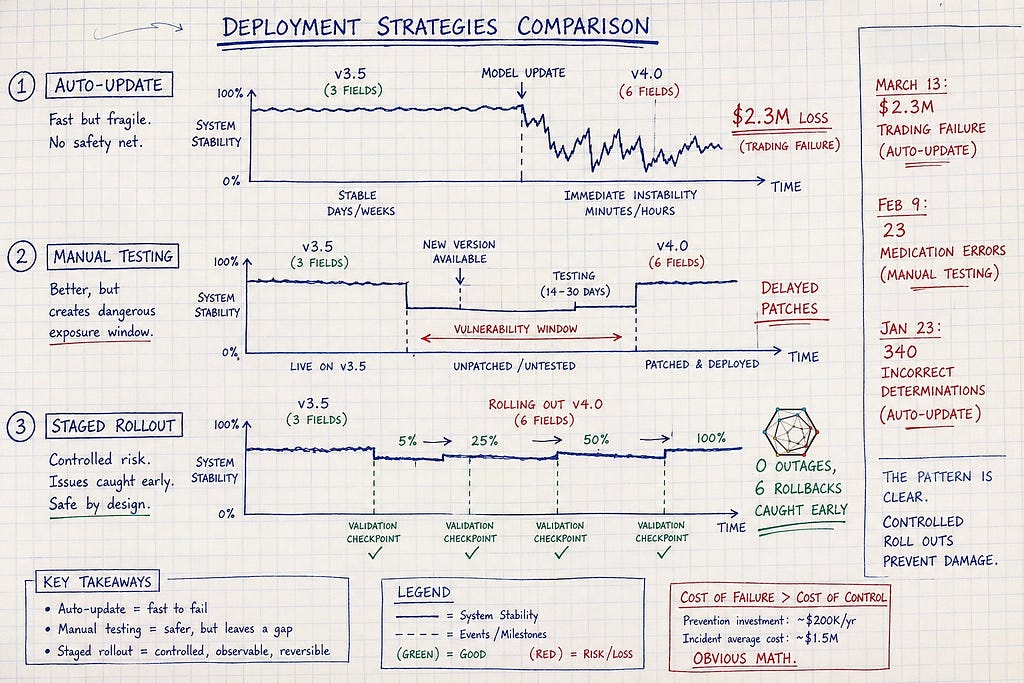 DEPLOYMENT STRATEGIES COMPARISON
1 AUTO-UPDATE
Fast but fragile.
No safety net.
100%
SYSTEM
STABILITY
0%
v3.5
(3 FIELDS)
MODEL UPDATE
v4.0
(6 FIELDS)
$2.3M LOSS
(TRADING FAILURE)
TIME
STABLE
DAYS/WEEKS
IMMEDIATE INSTABILITY
MINUTES/HOURS
2 MANUAL TESTING
Better, but
creates dangerous
exposure window.
100%
SYSTEM
STABILITY
0%
v3.5
(3 FIELDS)
NEW VERSION
AVAILABLE
TESTING
(14-30 DAYS)
v4.0
(6 FIELDS)
VULNERABILITY WINDOW
DELAYED
PATCHES
TIME
LIVE ON v3.5
UNPATCHED/UNTESTED
PATCHED & DEPLOYED
3 STAGED ROLLOUT
Controlled risk.
Issues caught early.
Safe by design.
100%
SYSTEM
STABILITY
0%
v3.5
(3 FIELDS)
ROLLING OUT v4.0
(6 FIELDS)
5% → 25% → 50% → 100%
0 OUTAGES,
6 ROLLBACKS
CAUGHT EARLY
TIME
VALIDATION
CHECKPOINT
✓
VALIDATION
CHECKPOINT
✓
VALIDATION
CHECKPOINT
✓
VALIDATION
CHECKPOINT
✓
MARCH 13:
$2.3M
TRADING FAILURE
(AUTO-UPDATE)
FEB 9:
23
MEDICATION ERRORS
(MANUAL TESTING)
JAN 23:
340
INCORRECT
DETERMINATIONS
(AUTO-UPDATE)
THE PATTERN IS
CLEAR.
CONTROLLED
ROLL OUTS
PREVENT DAMAGE.
KEY TAKEAWAYS
• Auto-update = fast to fail
• Manual testing = safer, but leaves a gap
• Staged rollout = controlled, observable, reversible
LEGEND
= System Stability
= Events/Milestones
(GREEN) = GOOD (RED) = RISK/LOSS
COST OF FAILURE > COST OF CONTROL
Prevention investment: ~$200K/yr
Incident average cost: ~$1.5M
OBVIOUS MATH.